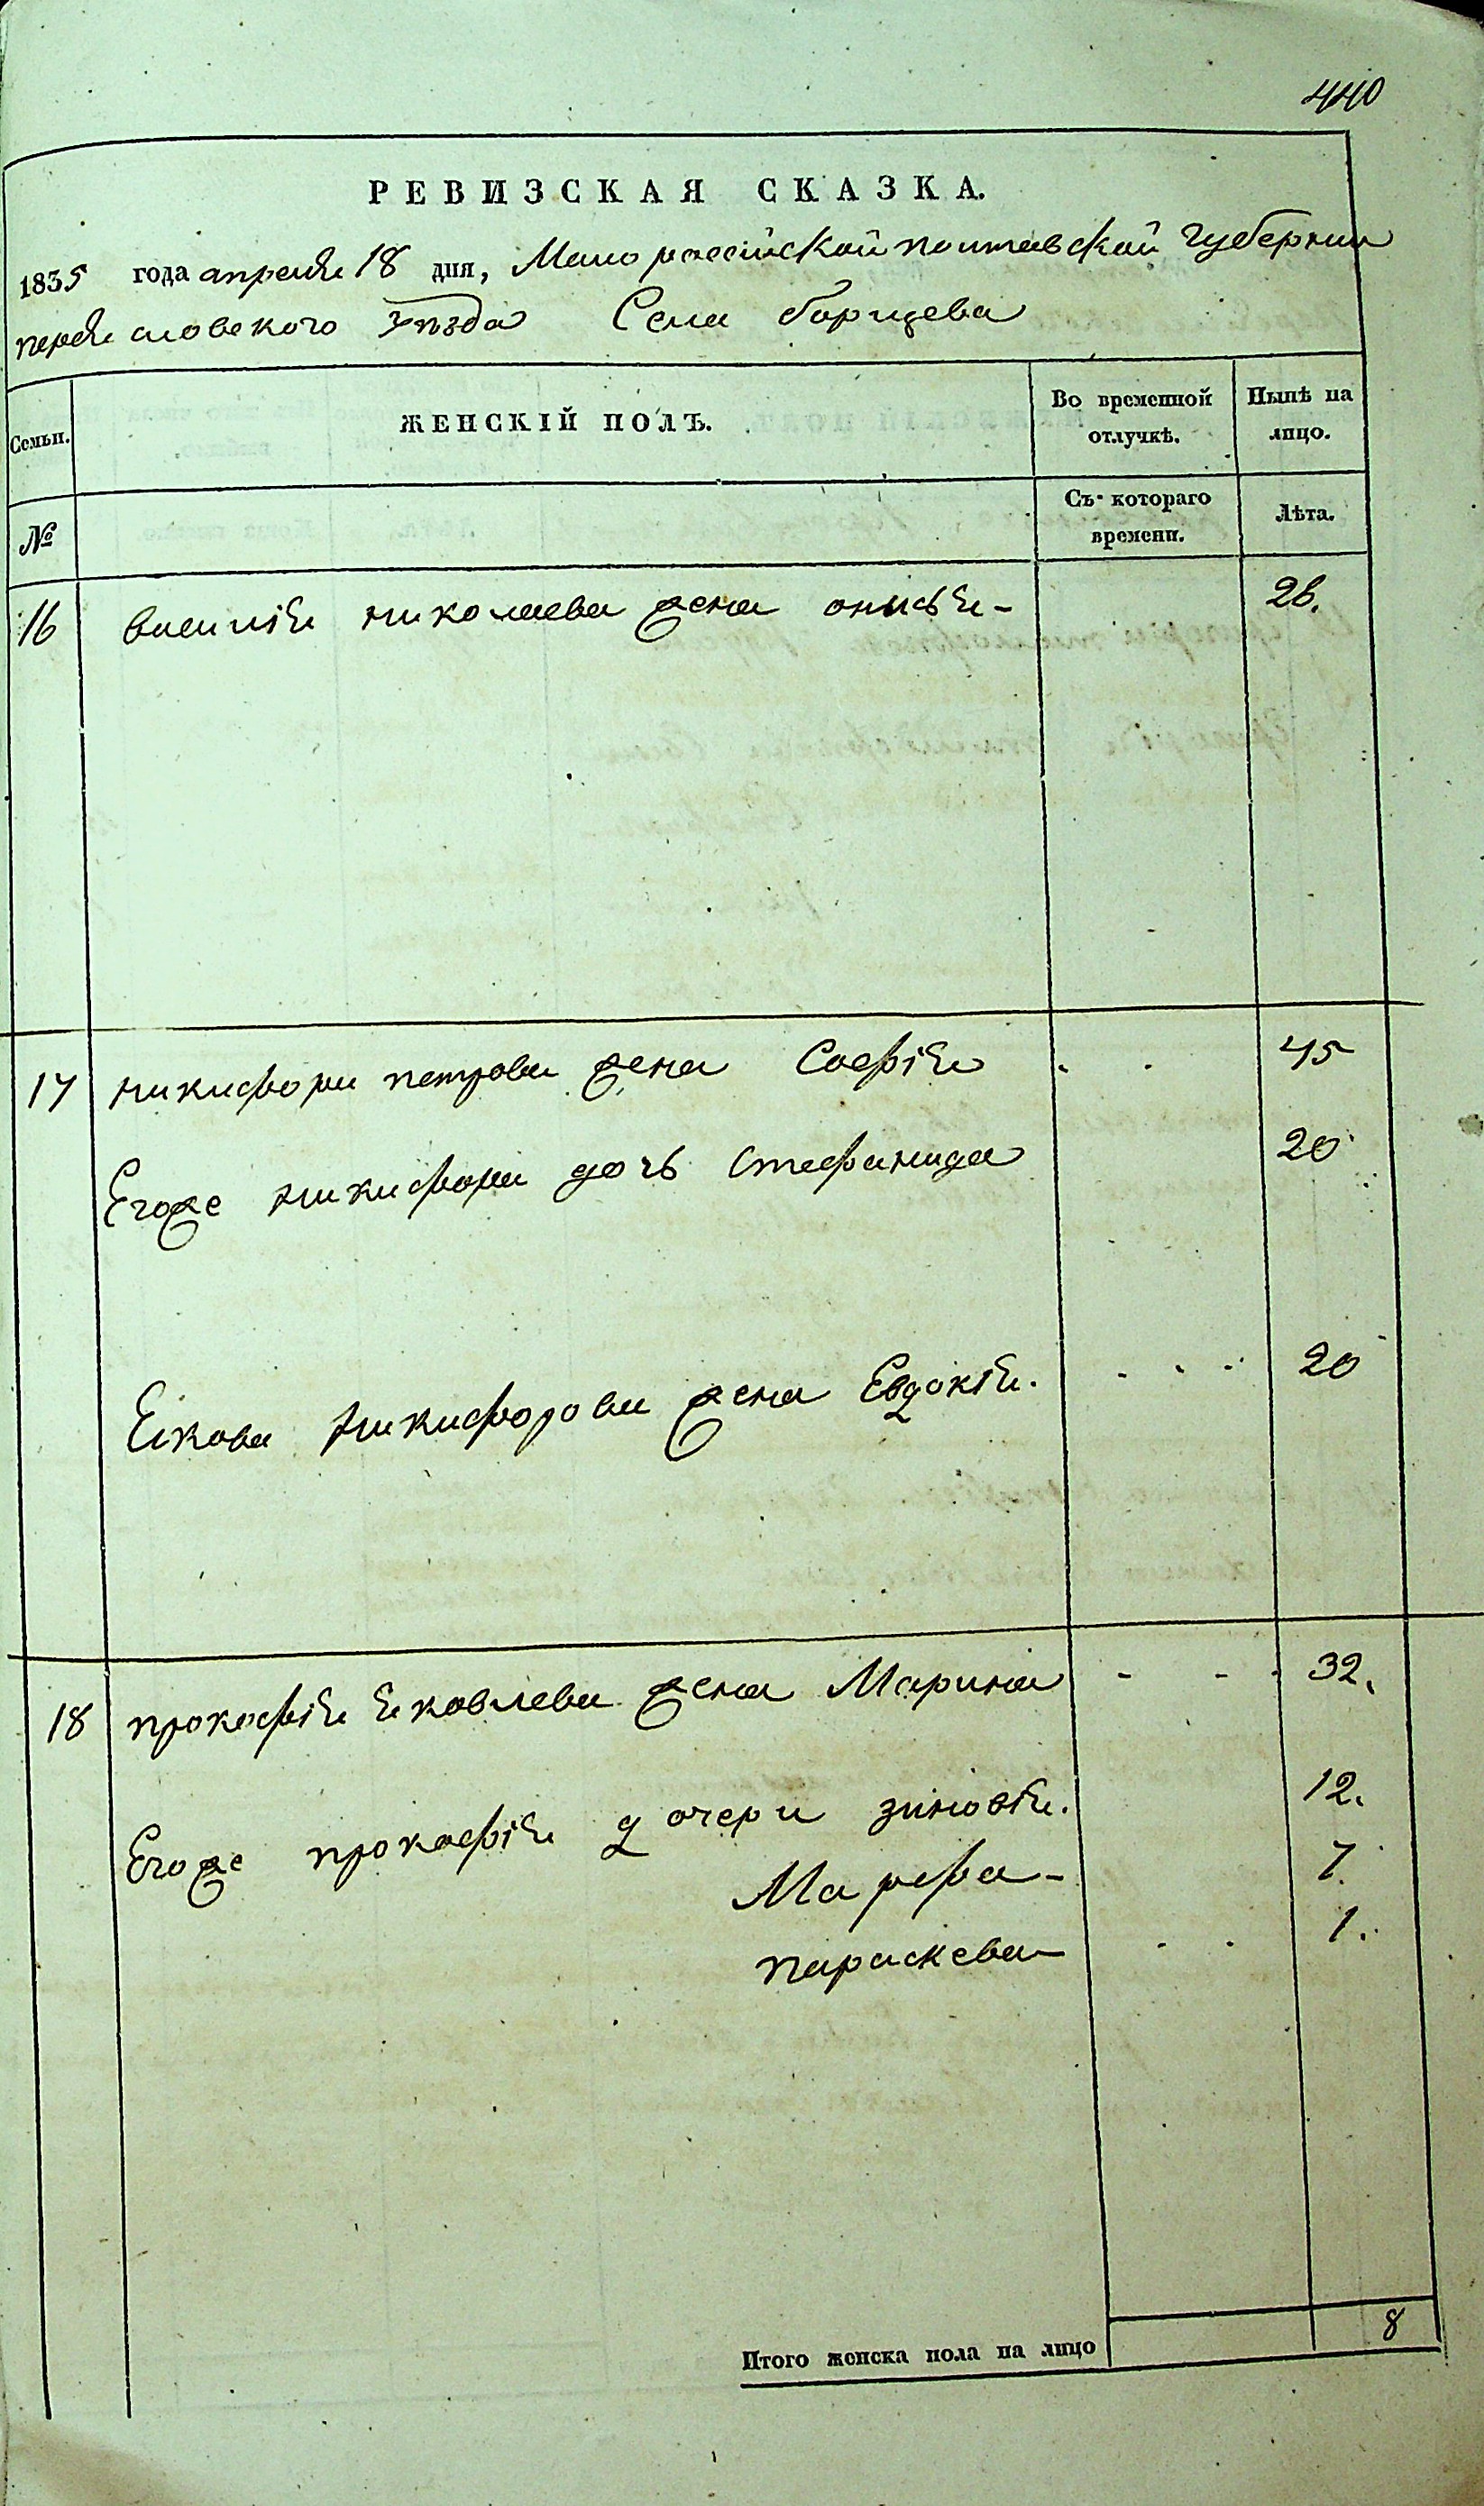 440
РЕВИЗСКАЯ СКАЗКА.
1835 года апреля 18 дня, Малороссійской полтавской губернии
переясловского уѣзда Села борщева
Семьи. ЖЕНСКІЙ ПОЛЪ. Во временной отлучкѣ. Нынѣ на лицо.
№ Съ котораго времени. Лѣта.
16 василия николаева жена 26.
17 никифора петрова жена Софія 45
Егоже никифора дочь Стефанида 20
Якова никифорова жена Евдокія. 20
18 прокофія яковлева жена Марина 32.
Егоже прокофія дочери зіновія. 12.
Марфа 7.
параскева 1.
Итого женска пола на лицо 8